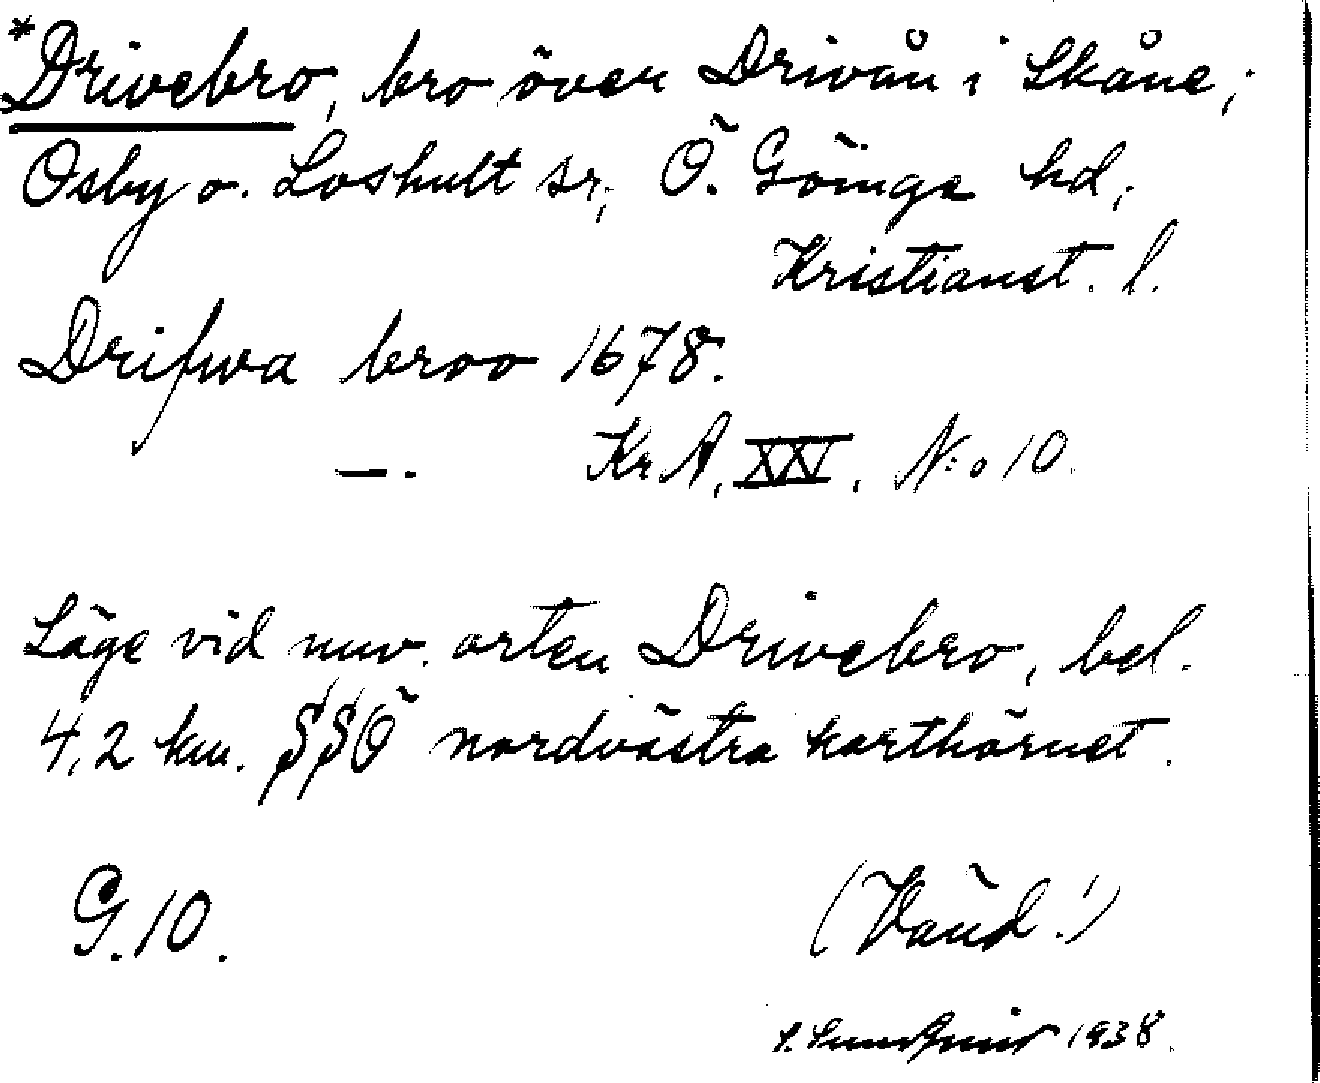 *Drivebro, bro över Drivån i Skåne;
Osby o. Loshult sr, Ö. Göinge hd,
Kristianst. l.
Drifwa broo 1678.
— . Kr.A, XXV, N:o 10.
Läge vid nuv. orten Drivebro, bel.
4,2 km. SSÖ nordvästra karthörnet.
G.10.
(Vänd!)
1938.